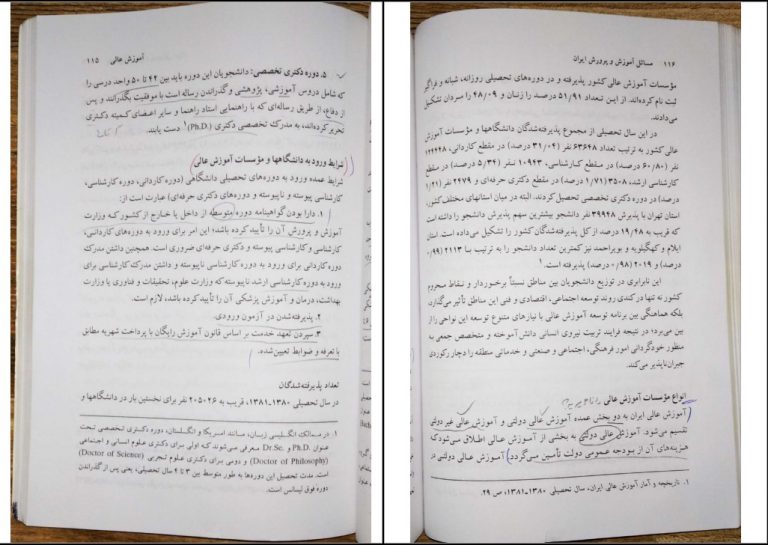 آموزش عالی ۱۱۵
۵. دوره دکتری تخصصی: دانشجویان این دوره باید بین ۴۲ تا ۵۰ واحد درسی را
که شامل دروس آموزشی، پژوهشی و گذراندن رساله است با موفقیت بگذرانند و پس
از دفاع، از طریق رساله‌ای که با راهنمایی استاد راهنما و سایر اعضای کمیته دکتری
تحریر کرده‌اند، به مدرک تخصصی دکتری (Ph.D.)۱ دست یابند.
شرایط ورود به دانشگاهها و مؤسسات آموزش عالی
شرایط عمده ورود به دوره‌های تحصیلی دانشگاهی (دوره کاردانی، دوره کارشناسی،
کارشناسی پیوسته و ناپیوسته و دوره‌های دکتری حرفه‌ای) عبارت است از:
۱. دارا بودن گواهینامه دوره متوسطه از داخل یا خارج از کشور که وزارت
آموزش و پرورش آن را تأیید کرده باشد؛ این امر برای ورود به دوره‌های کاردانی،
کارشناسی و کارشناسی پیوسته و دکتری حرفه‌ای ضروری است. همچنین داشتن مدرک
دوره کاردانی برای ورود به دوره کارشناسی ناپیوسته و داشتن مدرک کارشناسی برای
ورود به دوره کارشناسی ارشد ناپیوسته که وزارت علوم، تحقیقات و فناوری یا وزارت
بهداشت، درمان و آموزش پزشکی آن را تأیید کرده باشد، لازم است.
۲. پذیرفته‌شدن در آزمون ورودی.
۳. سپردن تعهد خدمت بر اساس قانون آموزش رایگان یا پرداخت شهریه مطابق
با تعرفه و ضوابط تعیین‌شده.
تعداد پذیرفته‌شدگان
در سال تحصیلی ۱۳۸۰-۱۳۸۱، قریب به ۲۰۵۰۲۶ نفر برای نخستین بار در دانشگاهها و
۱. در ممالک انگلیسی زبان، مسانند امریکا و انگلستان، دوره دکتری تخصصی تحت
عنوان Ph.D. و Dr.Sc. معرفی می‌شوند که اولی برای دکتری علوم انسانی و اجتماعی
(Doctor of Philosophy) و دومی برای دکتری علوم تجربی (Doctor of Science)
است. مدت تحصیل این دوره‌ها به طور متوسط بین ۳ تا ۴ سال تحصیلی، یعنی پس از گذراندن
دوره فوق لیسانس است.
۱۱۶ مسائل آموزش و پرورش ایران
مؤسسات آموزش عالی کشور پذیرفته و در دوره‌های تحصیلی روزانه، شبانه و فراگیر
ثبت نام کرده‌اند. از این تعداد ۵۱/۹۱ درصد را زنان و ۴۸/۰۹ را مردان تشکیل
می‌دادند.
در این سال تحصیلی از مجموع پذیرفته‌شدگان دانشگاهها و مؤسسات آموزش
عالی کشور به ترتیب تعداد ۶۳۶۴۸ نفر (۳۱/۰۴ درصد) در مقطع کاردانی،
نفر (۶۰/۸۰ درصد) در مقطع کارشناسی، ۱۰۹۴۳ نفر (۵/۳۴ درصد) در مقطع
کارشناسی ارشد، ۳۵۰۸ (۱/۷۱ درصد) در مقطع دکتری حرفه‌ای و ۲۴۷۹ نفر (۱/۲۱
درصد) در دوره دکتری تخصصی تحصیل کردند. البته در میان استانهای مختلف کشور،
استان تهران با پذیرش ۳۹۹۴۸ نفر دانشجو بیشترین سهم پذیرش دانشجو را داشته است
که قریب به ۱۹/۴۸ درصد از کل پذیرفته‌شدگان کشور را تشکیل می‌داده است. استان
ایلام و کهگیلویه و بویراحمد نیز کمترین تعداد دانشجو را به ترتیب با ۲۱۱۳ (۰/۹۹
درصد) و ۲۰۱۹ (۰/۹۸ درصد) پذیرفته است.۱
این نابرابری در توزیع دانشجویان بین مناطق نسبتاً برخوردار و نقاط محروم
کشور نه تنها در کندی روند توسعه اجتماعی، اقتصادی و فنی این مناطق تأثیر می‌گذارد،
بلکه هماهنگی بین برنامه توسعه آموزش عالی با نیازهای متنوع توسعه این نواحی را از
بین می‌برد؛ در نتیجه فرایند تربیت نیروی انسانی دانش‌آموخته و متخصص جمعی به
منظور خودگردانی امور فرهنگی، اجتماعی و صنعتی و خدماتی منطقه را دچار رکودی
جبران‌ناپذیر می‌کند.
انواع مؤسسات آموزش عالی
آموزش عالی ایران به دو بخش عمده آموزش عالی دولتی و آموزش عالی غیر دولتی
تقسیم می‌شود. آموزش عالی دولتی به بخشی از آموزش عالی اطلاق می‌شود که
هزینه‌های آن از بودجه عمومی دولت تأمین می‌گردد. آموزش عالی دولتی در
۱. تاریخچه و آمار آموزش عالی ایران، سال تحصیلی ۱۳۸۰-۱۳۸۱؛ ص ۲۹.